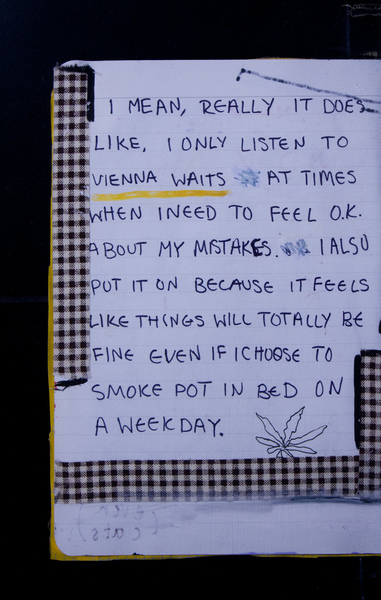 I MEAN, REALLY IT DOES
LIKE, I ONLY LISTEN TO
VIENNA WAITS AT TIMES
WHEN I NEED TO FEEL O.K.
ABOUT MY MISTAKES. I ALSO
PUT IT ON BECAUSE IT FEELS
LIKE THINGS WILL TOTALLY BE
FINE EVEN IF I CHOOSE TO
SMOKE POT IN BED ON
A WEEKDAY.